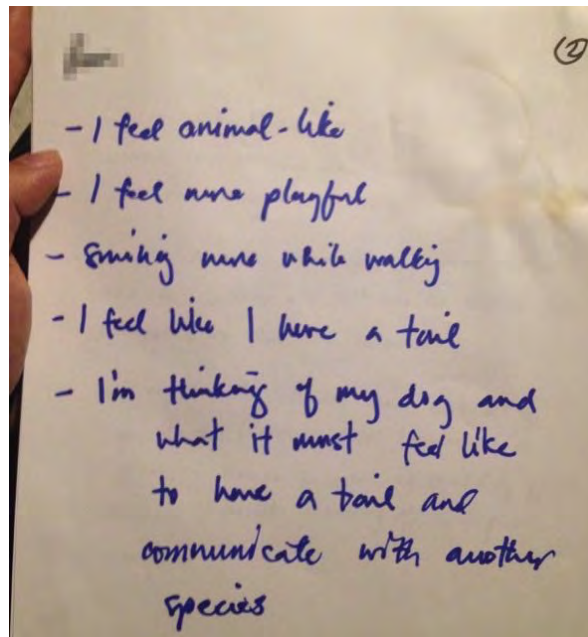 ②
- I feel animal-like
- I feel more playful
- Smiling more while walking
- I feel like I have a tail
- I'm thinking of my dog and
what it must feel like
to have a tail and
communicate with another
species